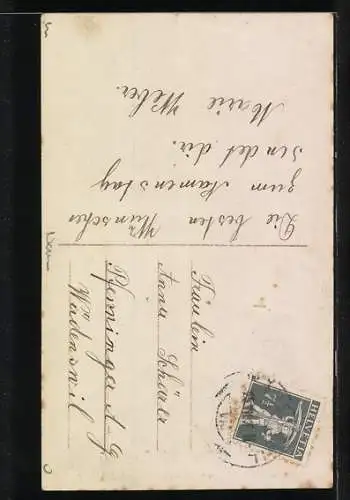 Die besten Wünsche
zum Namenstag
sendet dir.
Marie Weber.
Fräulein
Anna Schürer
Pfenninger A-G
Wädenswil
HELVETIA